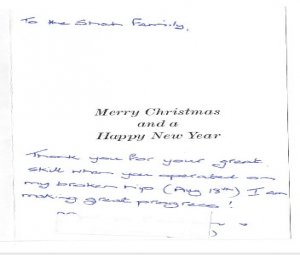 To the Shah Family,
Merry Christmas
and a
Happy New Year
Thank you for your great
skill when you operated on
my broken hip (Aug 13th) I am
making great progress!